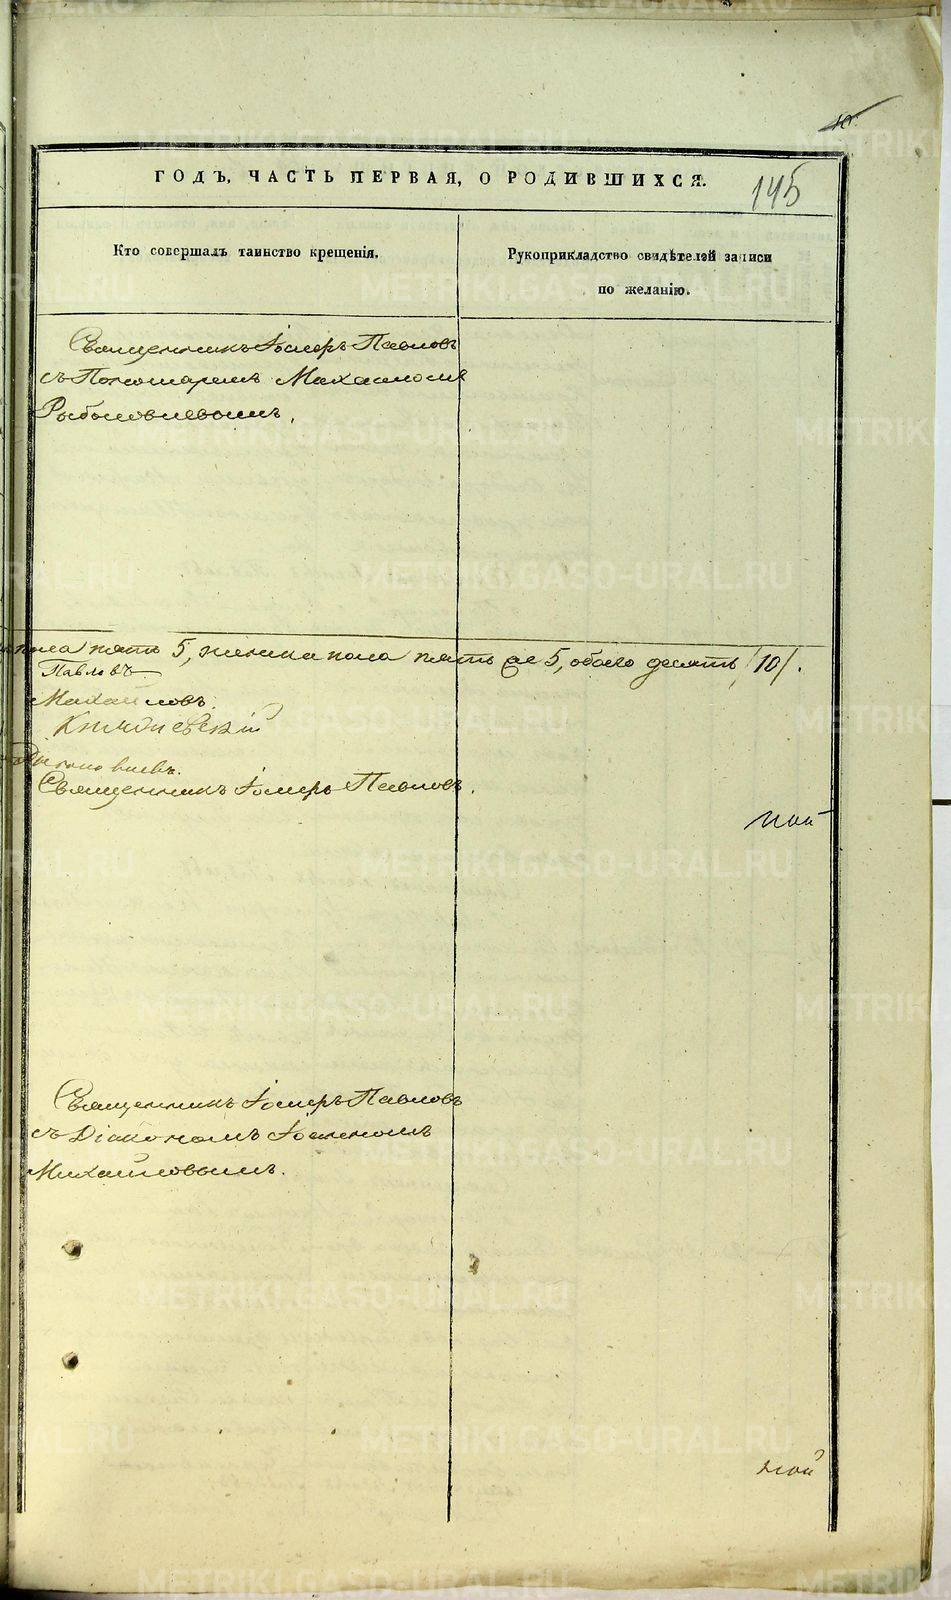 10.
ГОДЪ, ЧАСТЬ ПЕРВАЯ, О РОДИВШИХСЯ.
145
Кто совершалъ таинство крещенія.
Рукоприкладство свидѣтелей записи
по желанію.
Священникъ Іосифъ Павловъ
съ Пономаремъ
пола пять 5, женска пола пять же 5, обоего десять /10/.
Павловъ
Михайловъ.
Священникъ Іосифъ Павловъ.
Священникъ Іосифъ Павловъ
съ Діакономъ Іоанномъ
Михайловымъ.
METRIKI.GASO-URAL.RU